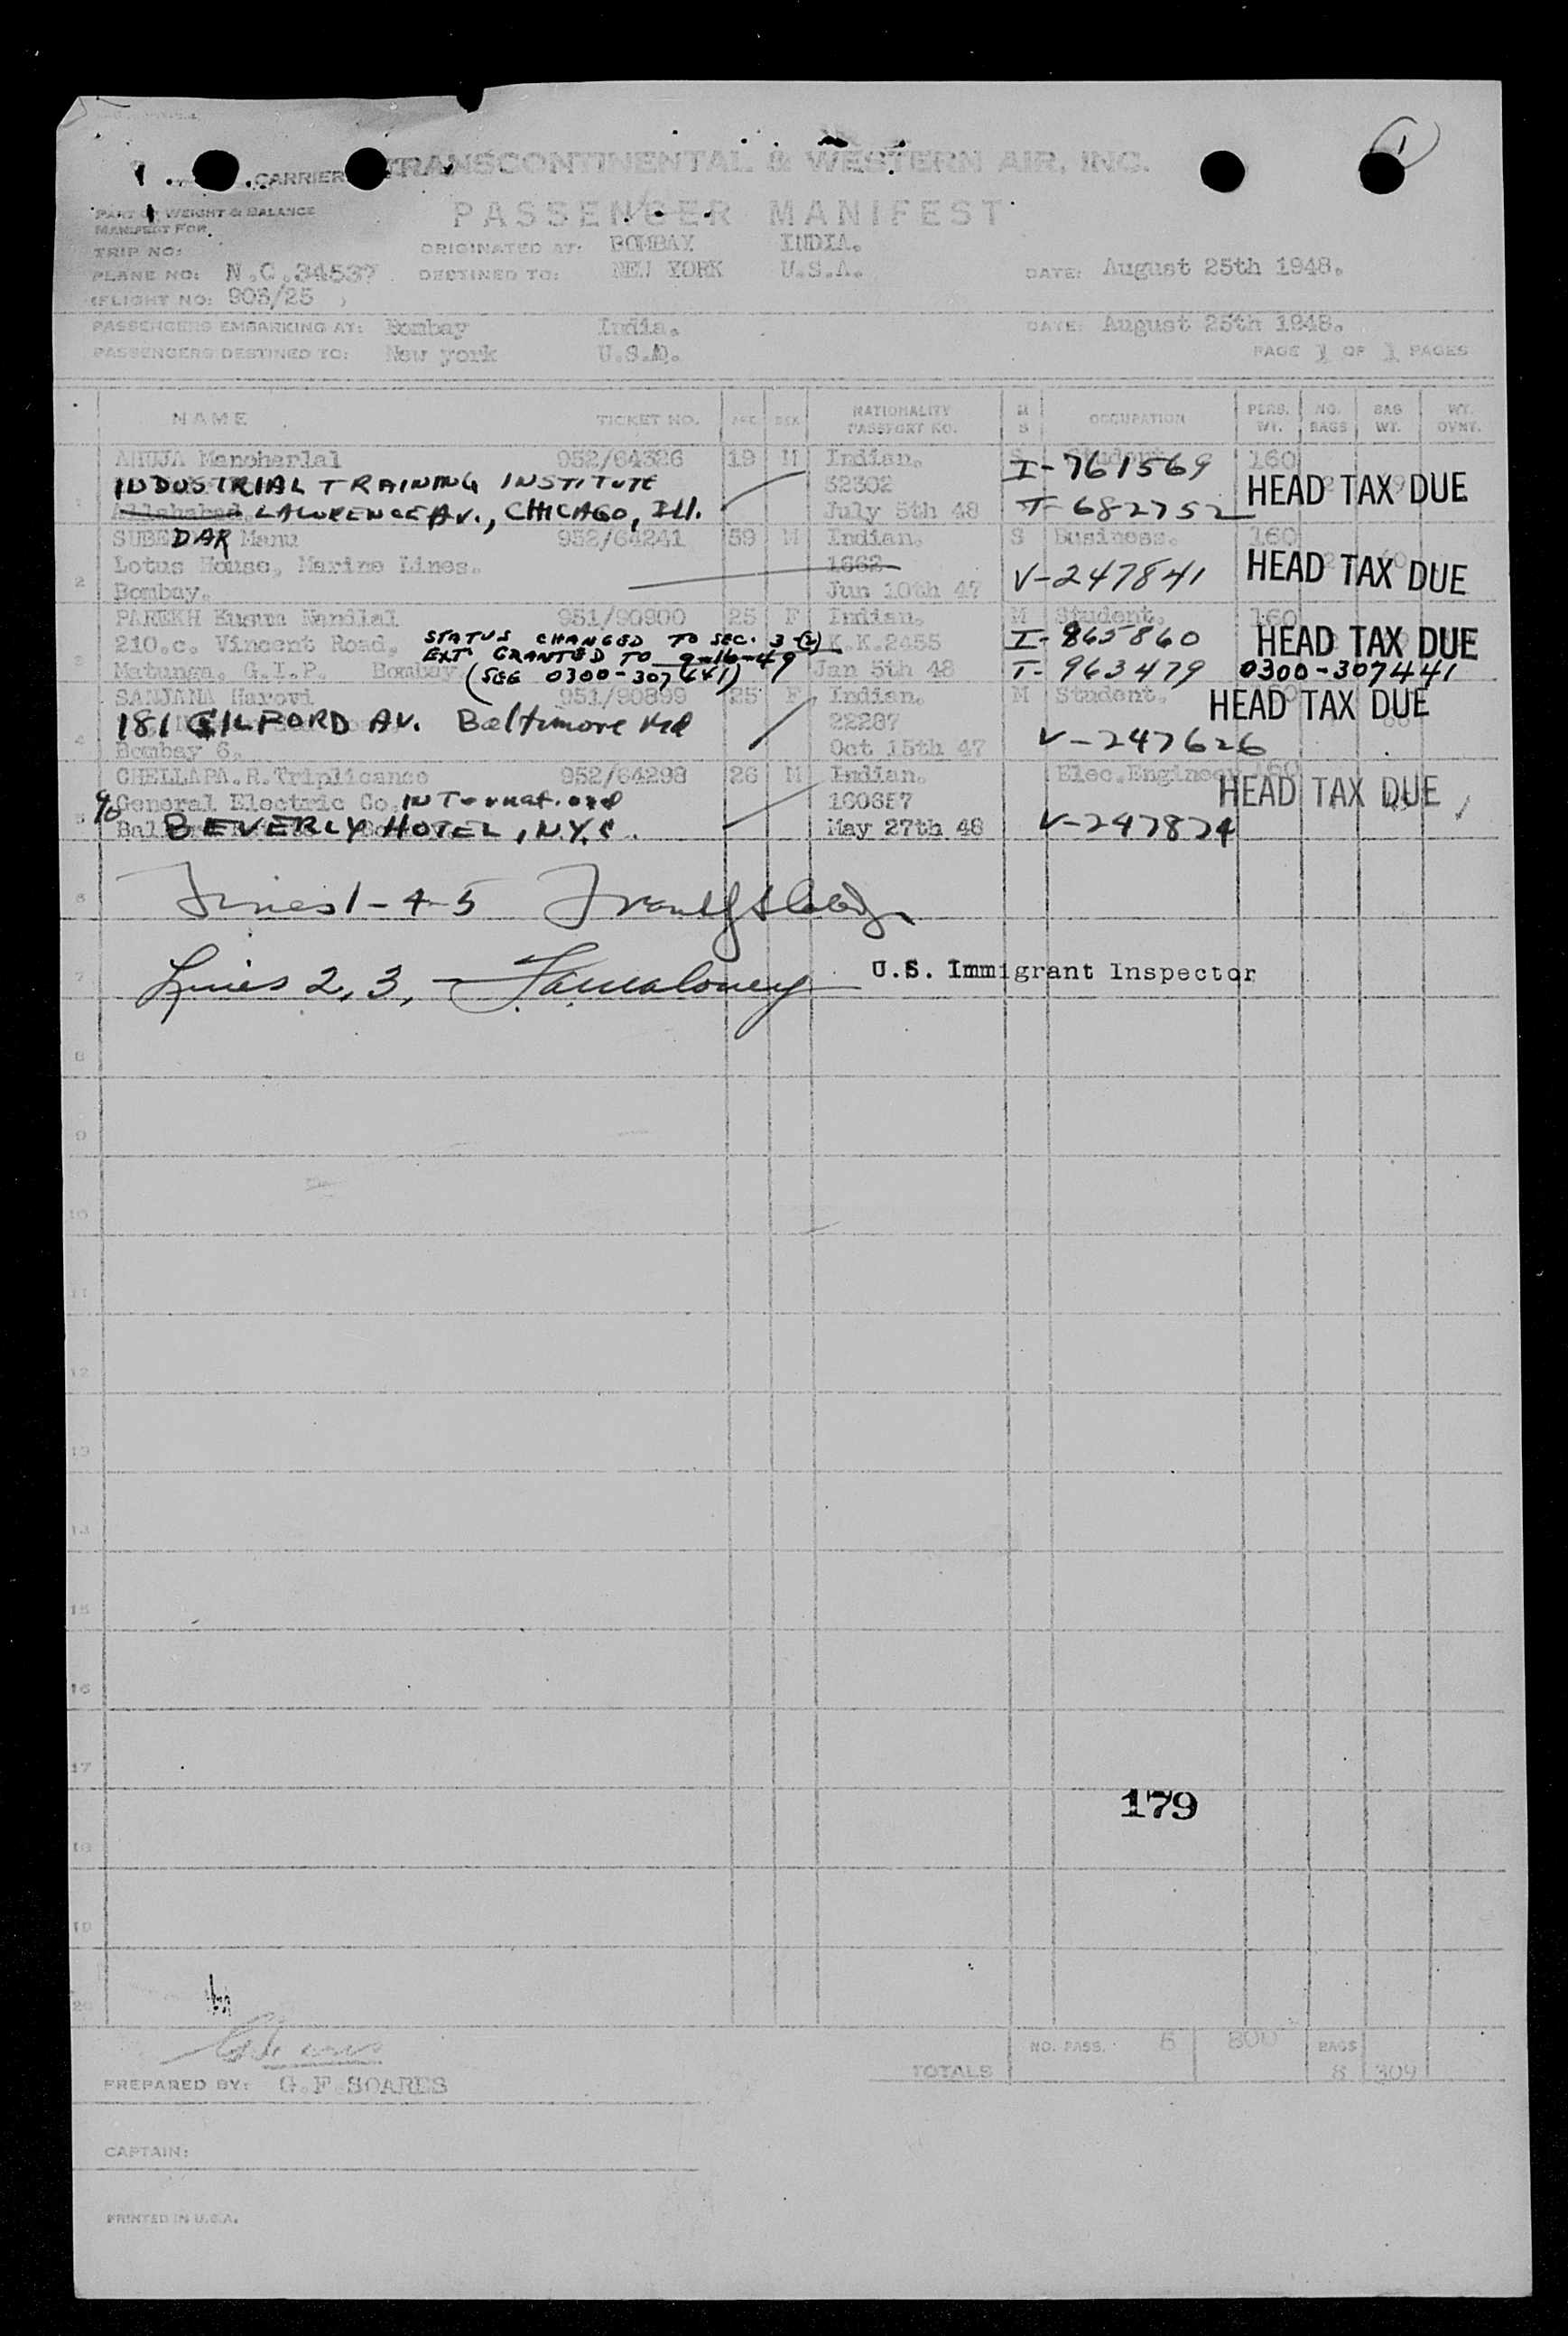 1
CARRIER TRANSCONTINENTAL & WESTERN AIR, INC.
PART OF WEIGHT & BALANCE
MANIFEST FOR
PASSENGER MANIFEST
TRIP NO: ORIGINATED AT: BOMBAY INDIA.
PLANE NO: N.C.34537 DESTINED TO: NEW YORK U.S.A. DATE: August 25th 1948.
(FLIGHT NO: 905/25 )
PASSENGERS EMBARKING AT: Bombay India. DATE: August 25th 1948.
PASSENGERS DESTINED TO: New york U.S.A.
PAGE 1 OF 1 PAGES
NAME TICKET NO. AGE SEX NATIONALITY PASSPORT NO. M S OCCUPATION PERS. WT. NO. BAGS BAG WT. WT. OVNT.
AHUJA Manoherlal 952/64326 19 M Indian. S Student. 160
INDUSTRIAL TRAINING INSTITUTE 32302 I-761569 HEAD TAX DUE
1 Allahabad. LAWRENCE AV., CHICAGO, Ill. July 5th 48 T-682752
SUBEDAR Manu 952/64241 59 M Indian. S Business. 160
Lotus House, Marine Lines. 1662 V-247841 HEAD TAX DUE
2 Bombay. Jun 10th 47
PAREKH Kusum Nandlal 951/90900 25 F Indian. M Student. 160
210.c. Vincent Road, STATUS CHANGED TO SEC. 3-(2) K.K.2455 I-865860 HEAD TAX DUE
EXT GRANTED TO 9-16-49
3 Matunga, G.I.P. Bombay (SEE 0300-307441) Jan 5th 48 T-963479 0300-307441
SANJANA Harovi 951/90899 25 F Indian. M Student. HEAD TAX DUE
181 GILFORD AV. Baltimore Md 22287
4 Bombay 6. Oct 15th 47 V-247626
CHELLAPA.R.Triplicance 952/64298 26 M Indian. Elec.Engineer 160 HEAD TAX DUE
c/o General Electric Co. INTernational 160857
5 BEVERLY HOTEL, N.Y.C. May 27th 48 V-247874
6 Lines 1-4-5
7 Lines 2, 3, - F.A. Maloney U.S. Immigrant Inspector
8
9
10
11
12
13
15
16
17
179
18
19
20
NO. PASS. 5 800 BAGS
TOTALS 8 309
PREPARED BY: G.F.SOARES
CAPTAIN:
PRINTED IN U.S.A.